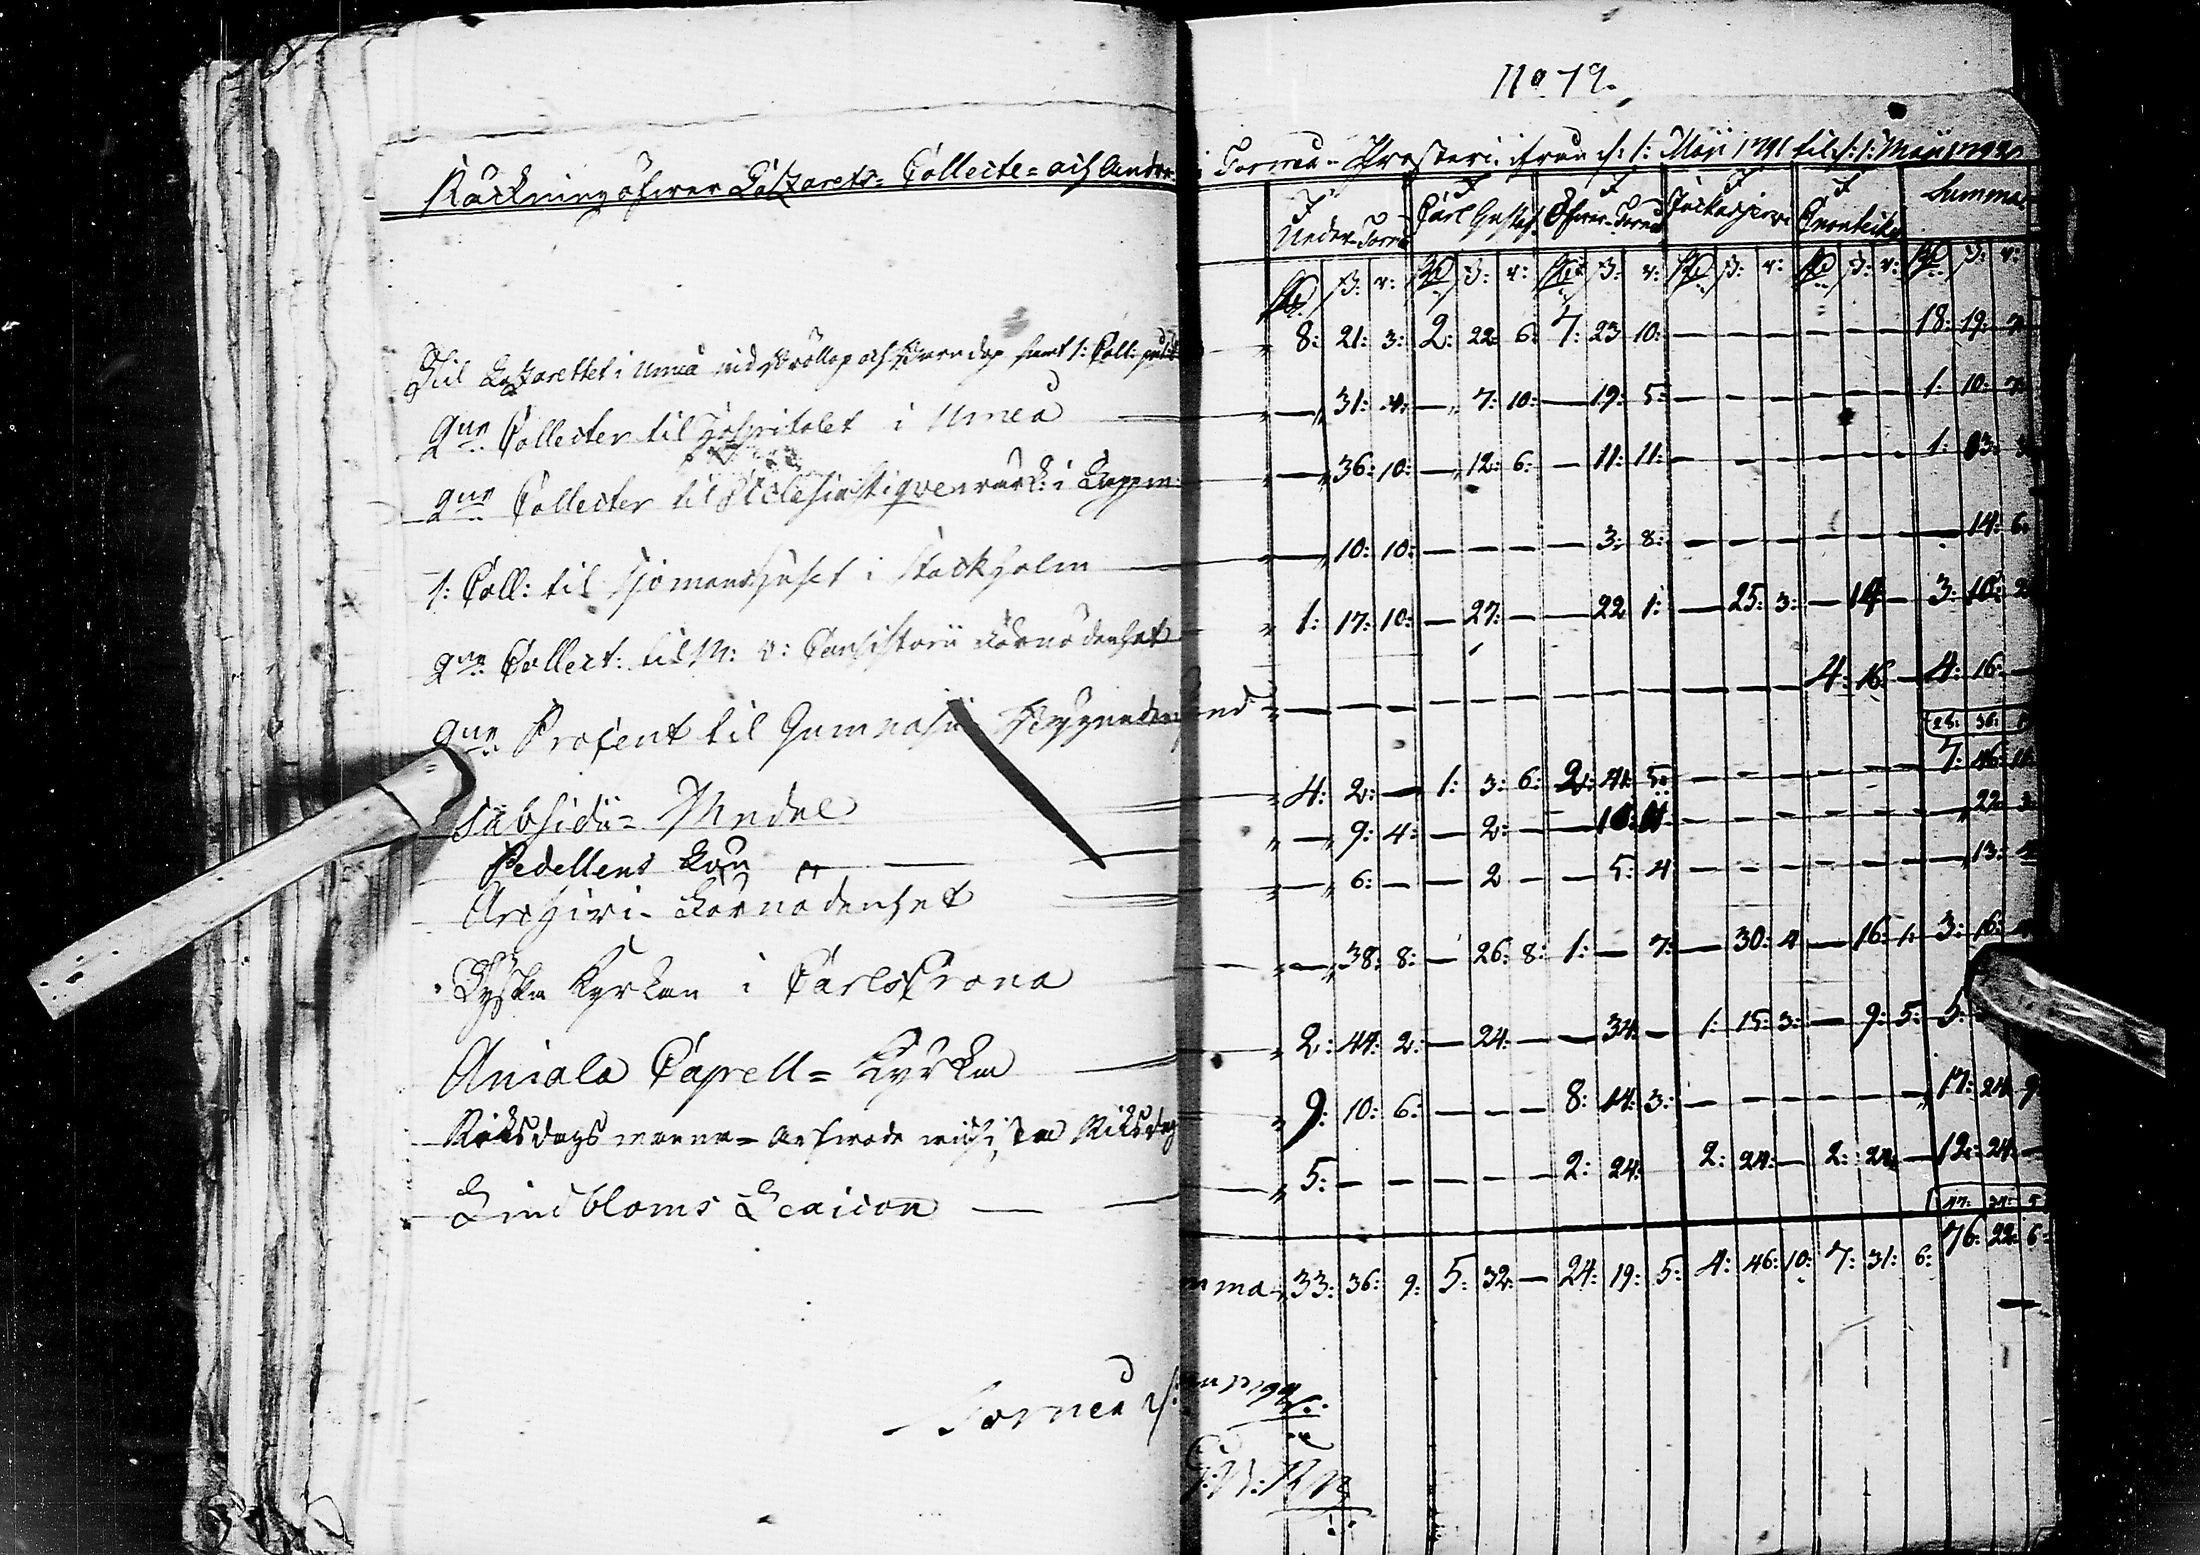 No 79.
Räckning öfwer Lazarets- Collecte- och Andra i Torneå Prosteri ifrån d: 1: Maji 1791 til d: 1: Maji 1792
I Neder-Torneå I Carl Gustaf I Öfwer-Torneå I Juckasjerwi I Enontekis Summa
Rd ß: r: Rd ß: r: Rd ß: r: Rd ß: r: Rd ß: r: Rd ß: r:
Til Lazarettet i Umeå wid Bröllop och Barndop samt 1: Coll: 8: 21: 3: 2: 22: 6: 7: 23 10: — — — — — — 18: 19: 7
2ne Collecter til Hospitalet i Umeå — 31: 4: — 7: 10: — 19: 5: — — — — — — 1: 10: 7
2ne Collecter til Ecclesiastique wärk: i Lappm: — 36: 10: — 12: 6: — 11: 11: — — — — — — 1: 13: 3
1: Coll: til Sjömanshuset i Stockholm — 10: 10: — — — — 3: 8: — — — — — — — 14: 6:
2ne Collect: til M: V: Consistorii Nödwändighet 1: 17: 10: — 27: — — 22 1: — 25: 3: — 14 — 3: 10: 2
2ne Procent til Gymnasii Byggnaden — — — — — — — — — — — — 4: 16: — 4: 16: —
Subsidii- Medel 4: 2: — 1: 3: 6: 2: 41: 5: — — — — — — 7: 46: 11
Pedellens Lön — 9: 4: — 2: — — 10: 11: — — — — — — — 22: 3:
Archivi- — 6: — — 2 — — 5: 4 — — — — — — — 13: 4
Tyska Kyrkan i Carlscrona — 38: 8: — 26: 8: 1: — 7: — 30: 4 — 16: 1: 3: 16: 4
Aniala Capell- Kyrka 2: 44: 2: — 24: — — 34: — 1: 15: 3: — 9: 5: 5:
Riksdags manna- Arfwode 9: 10: 6: — — — 8: 14: 3: — — — — — — 17: 24: 9
Lindbloms Lexicon 5: — — — — — 2: 24: 2: 24: — 2: 24: — 12: 24: —
mma 33: 36: 9: 5: 32: — 24: 19: 5: 4: 46: 10: 7: 31: 6: 76: 22: 6:
Torneå d: